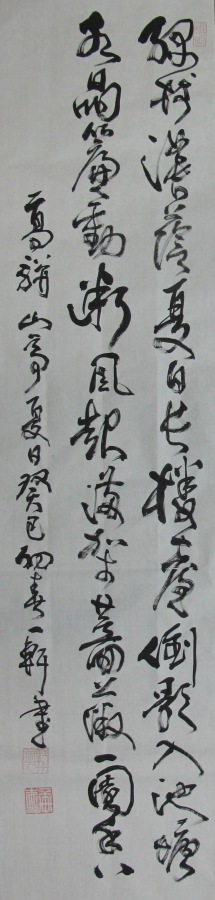 綠樹濃蔭夏日长樓臺倒影入池塘
水晶簾動微風起滿架薔薇一園香
高駢山亭夏日癸巳初春一軒書